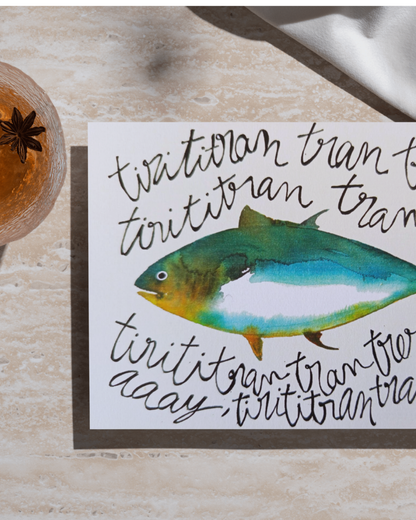 tirititran tran t
tirititran tran
tirititran tran trer
aaay, tirititran tra